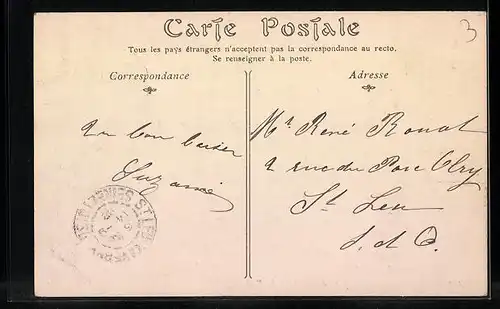 Carte Postale
Tous les pays étrangers n'acceptent pas la correspondance au recto.
Se renseigner à la poste.
Correspondance
Adresse
3
Un bon baiser
Suzanne
Mr René Rouat
2 rue du Parc Olry
St Leu
S. et O.